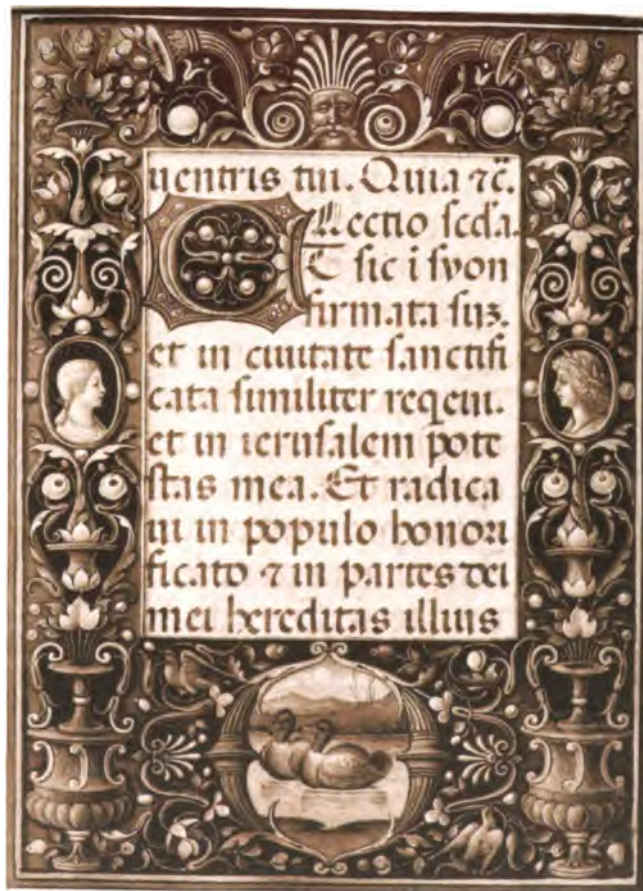 uentris tui. Quia ⁊c̄.
Lectio scđa.
ET sic i syon
firmata suꝫ.
et in ciuitate sanctifi
cata similiter requieui.
et in ierusalem pote
stas mea. Et radica
ui in populo honori
ficato ⁊ in partes dei
mei hereditas illius